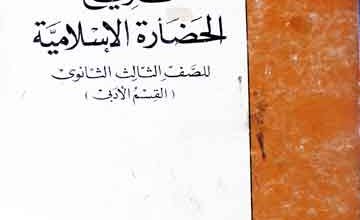 الحضَارة الإسلاميّة
للصّف الثالث الثانوى
( القِسمُ الأدبى )